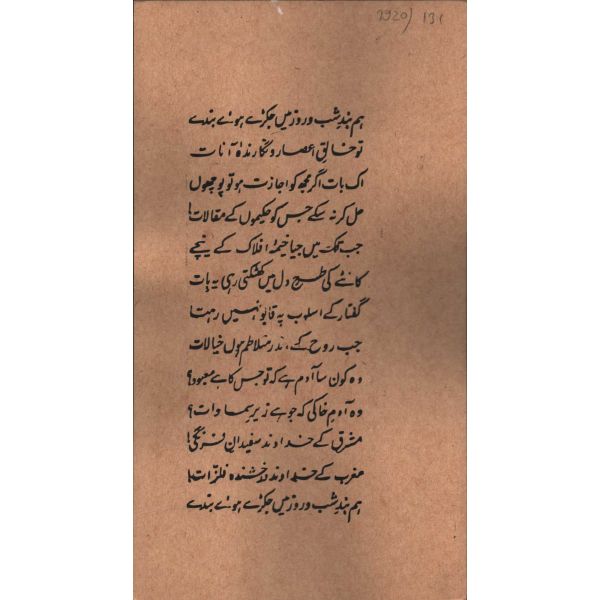 2920/ 131
ہم بندِ شب و روز میں جکڑے ہوئے بندے
تو خالقِ اعصار و نگارندۂ آنات
اک بات اگر مجھ کو اجازت ہو تو پوچھوں
حل کر نہ سکے جس کو حکیموں کے مقالات!
جب تک میں جیا خیمۂ افلاک کے نیچے
کانٹے کی طرح دل میں کھٹکتی رہی یہ بات
گفتار کے اسلوب پہ قابو نہیں رہتا
جب روح کے اندر متلاطم ہوں خیالات
وہ کون سا آدم ہے کہ تو جس کا ہے معبود؟
وہ آدمِ خاکی کہ جو ہے زیرِ سماوات؟
مشرق کے خداوند سفیدانِ فرنگی!
مغرب کے خداوند درخشندہ فلزات!
ہم بندِ شب و روز میں جکڑے ہوئے بندے